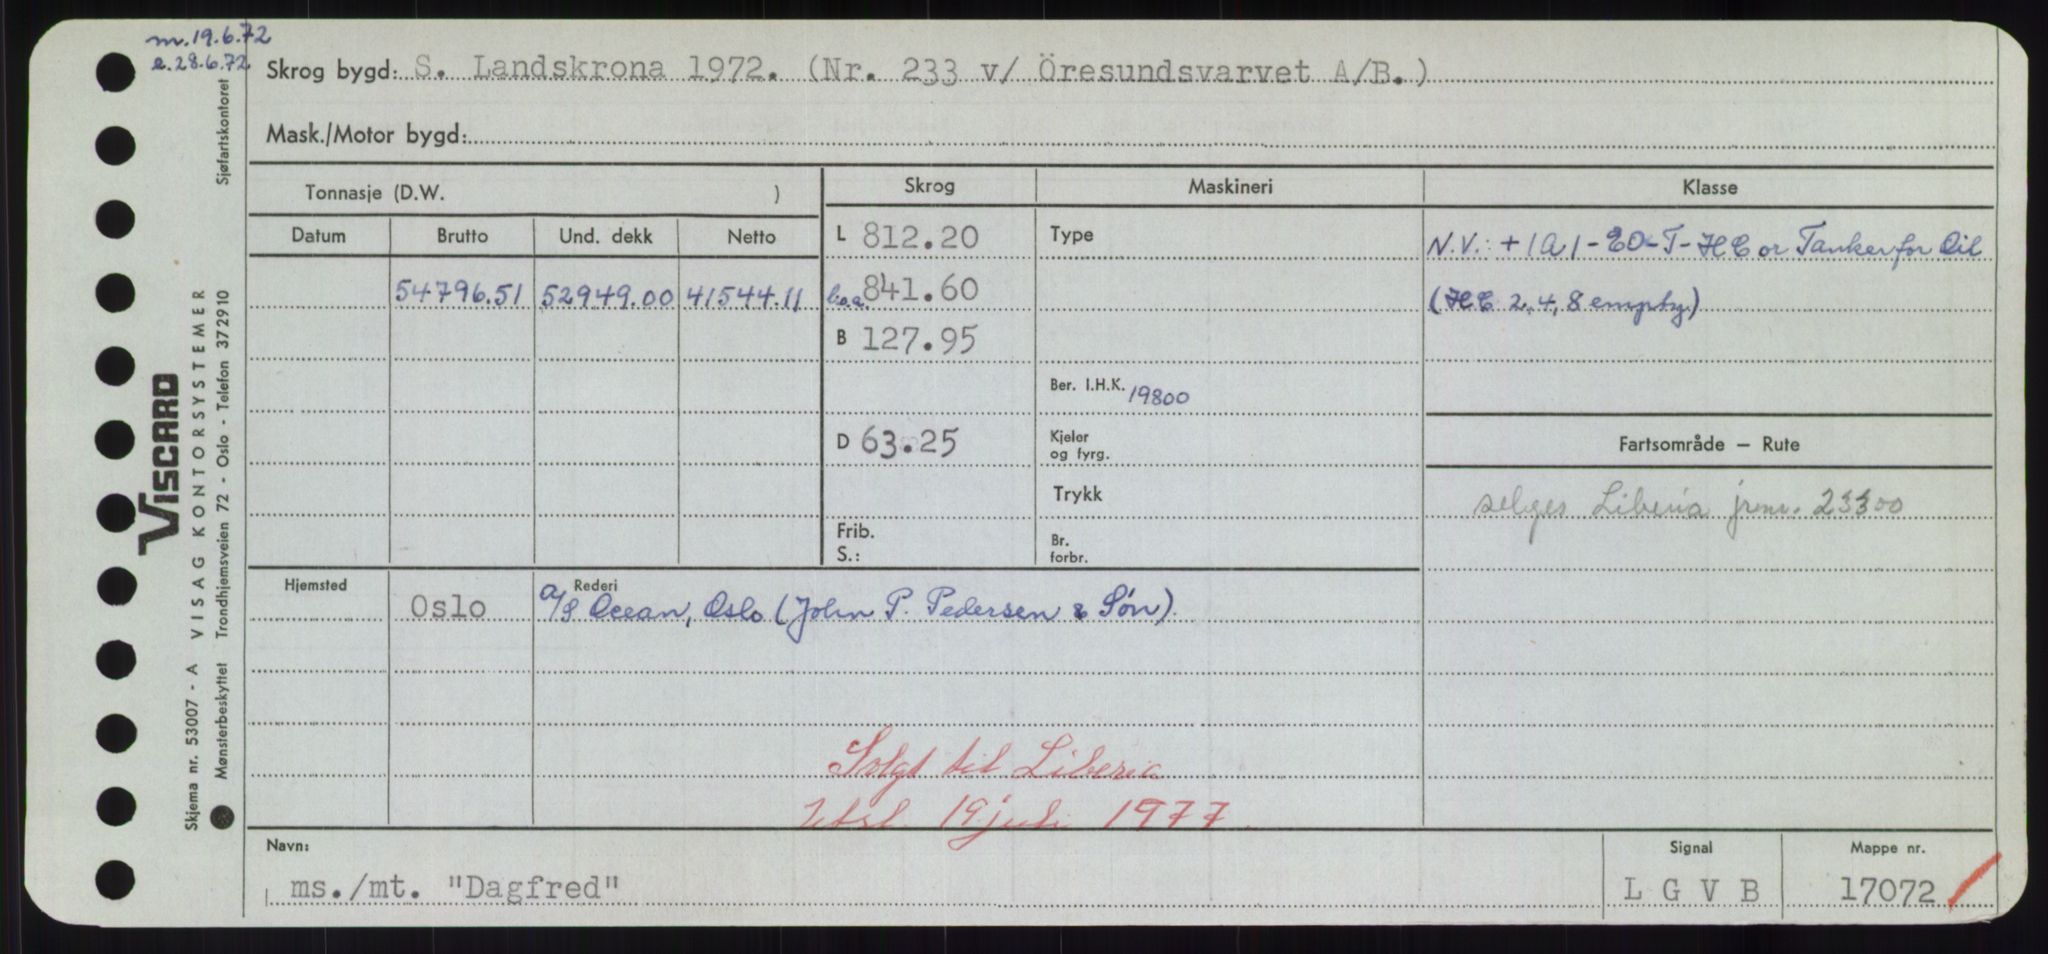 m. 19.6.72
e. 28.6.72
Skrog bygd: S. Landskrona 1972. (Nr. 233 v/ Öresundsvarvet A/B.)
Mask./Motor bygd:
Tonnasje (D.W. )
Skrog
Maskineri
Klasse
Datum
Brutto
Und. dekk
Netto
L 812.20
Type
N.V.: +1A1-EO-T-HC or Tanker for Oil
54796.51 52949.00 41544.11
l.o.a. 841.60
(HC 2, 4, 8 empty)
B 127.95
Ber. I.H.K. 19800
D 63.25
Kjeler
og fyrg.
Fartsområde — Rute
Trykk
selges Liberia jrnr. 23300
Frib.
S.:
Br.
forbr.
Hjemsted
Oslo
Rederi
A/S Ocean, Oslo (John P. Pedersen & Søn).
Solgt til Liberia
Utsl. 19 juli 1977.
Navn:
ms./mt. "Dagfred"
Signal
L G V B
Mappe nr.
17072
VISCARD
Skjema nr. 53007 - A VISAG KONTORSYSTEMER
Mønsterbeskyttet Trondhjemsveien 72 - Oslo - Telefon 372910 Sjøfartskontoret